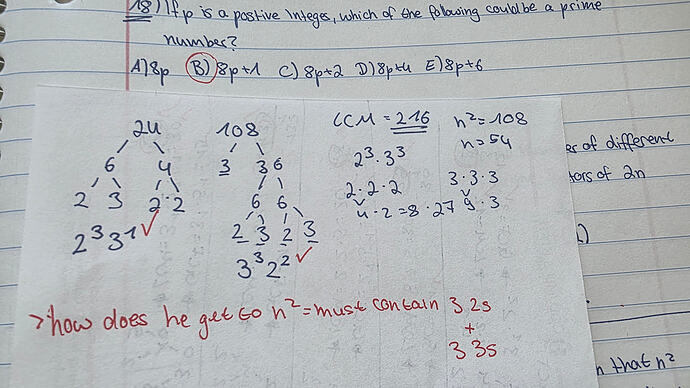 18) If p is a postive integes, which of the following could be a prime
number?
A) 8p B) 8p+1 C) 8p+2 D) 8p+4 E) 8p+6
24
6 4
2 3 2·2
2³3¹✓
108
3 36
6 6
2 3 2 3
3³2²✓
LCM = 216
2³·3³
2·2·2 3·3·3
4·2=8·27 9·3
n²=108
n=54
of different
of 2n
>how does he get to n²=must contain 3 2s
+
3 3s
that n²